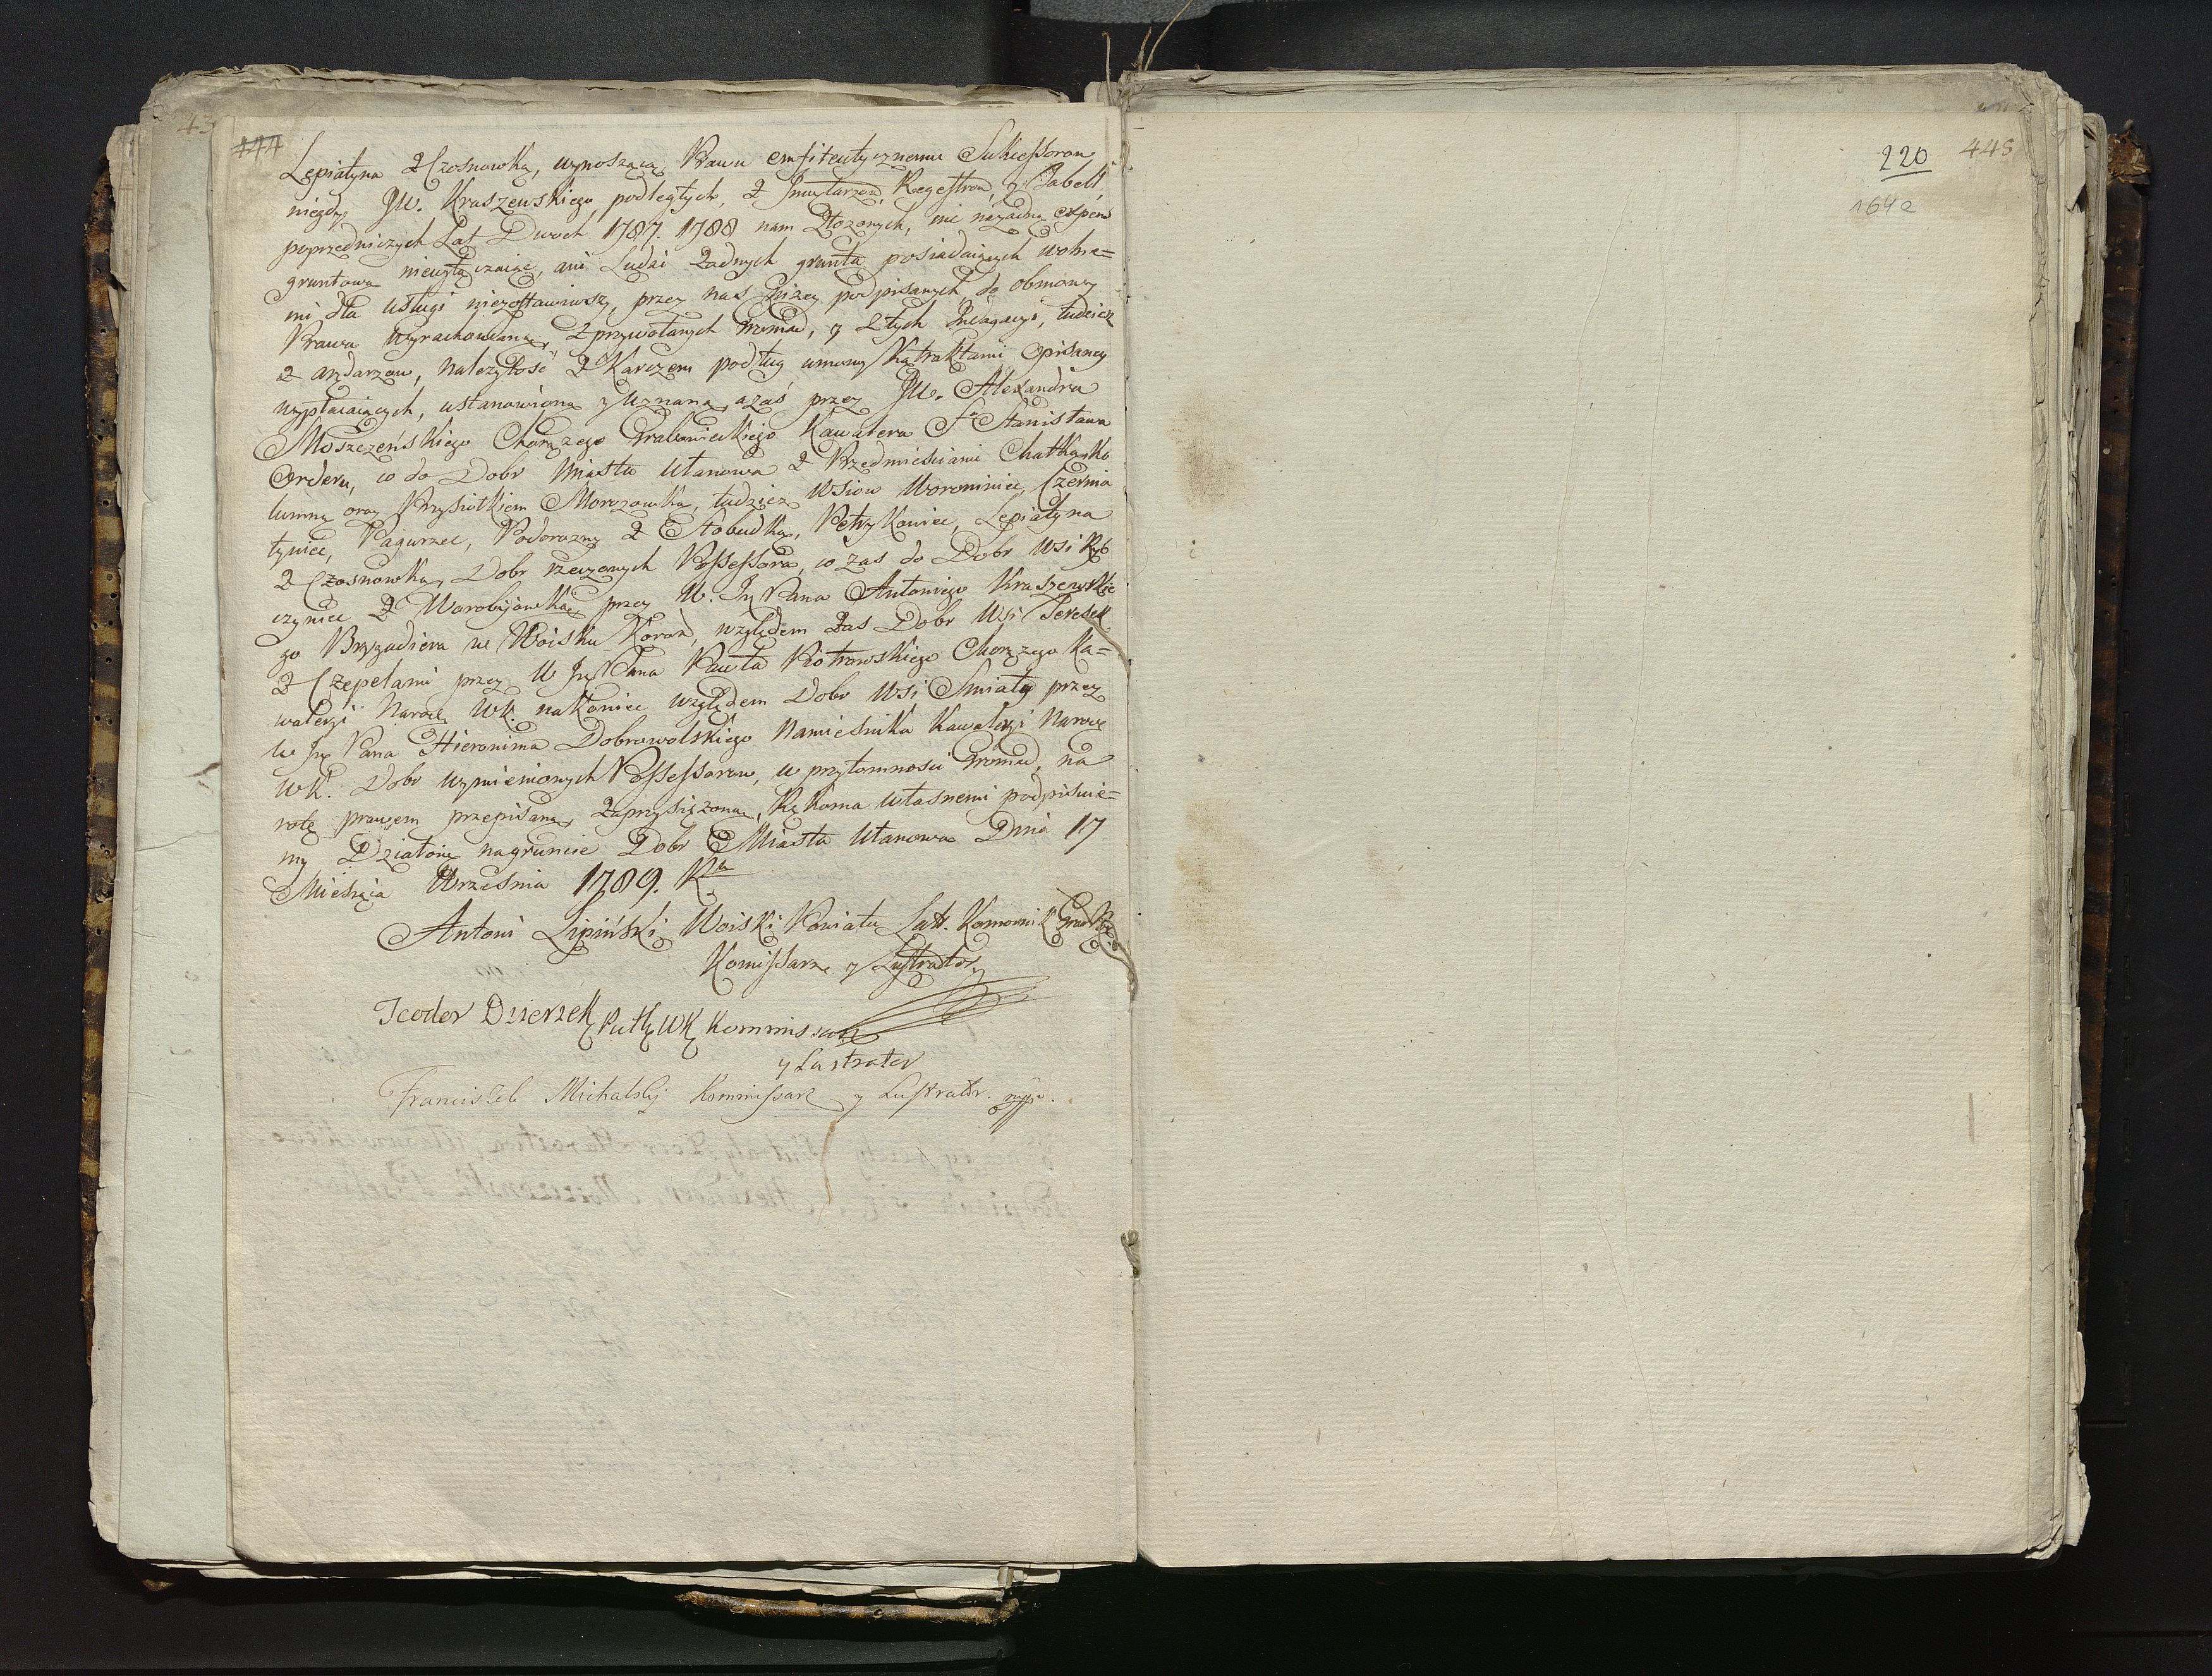 43
444
Lepiatyna Z Czosnowką, wynoszącą Prawu emfiteutycznemu Sukcessorow
niegdy JW. Kraszewskiego podległych, z Inwtarzow, Regestrow, y Tabell
poprzedniczych Lat Dwoch 1787. 1788 nam złożonych, nic nażadną expens
gruntową niewyłączaiąc, ani Ludzi żadnych grunta posiadaiących wolne=
mi dla usługi niezostawiwszy, przez nas Niżey podpisanych do obmowy
Prawa wyrachowaną, z przywołanych Gromad, y Ztych Indagacyi, tudzież
z arędarzow, należytość z Karczem podług umowy Kątraktami opisaney
wypłacaiących, ustanowioną y uznaną, azaś przez JW. Alexandra
Moszczeńskiego Chorążego Grabowieckiego Kawalera Sgo Stanisława
Orderu, co do Dobr Miasta Ułanowa z Przedmieściami Chatkąko
lumną oraz Przysiołkiem Morozowką, tudzież Wsiow Woroniniec, Czernia
tyniec, Pagurzec, Podorozną z Słobudką, Petrykowiec, Lepiatyna
Z Czosnowką, Dobr rzeczonych Possessora, co zas do Dobr Wsi Ryb
czyniec z Worobijowką przez W. Ję Pana Antoniego Kraszewskie
go Brygadiera w Woisku Koron, względem zas Dobr Wsi Teresek
z Czepelami przez W Ję Pana Pawła Piotrowskiego Chorążego Ka=
waleryi Narod WK. nakoniec względem Dobr Wsi Smiały przez
W Ję Pana Hieronima Dobrowolskiego Namiesnika Kawaleryi Narod
WK. Dobr wymienionych Possessorow, w przytomnosci Gromad, na
rotę prawem przepisaną, zaprzysiężoną, Rękoma własnemi podpisuie=
my Działono nagruncie Dobr Miasta Ułanowa Dnia 17
Miesiąca Września 1789. Rku
Antoni Lipiński Woiski Powiatu Lat. Komornik
Komissarz y Lustrator
Teodor Dzierzek WK Kommissarz
y Lustrator
Franciszek Michalskj Kommissarz y Lustrator. mpp.
220
445
1642